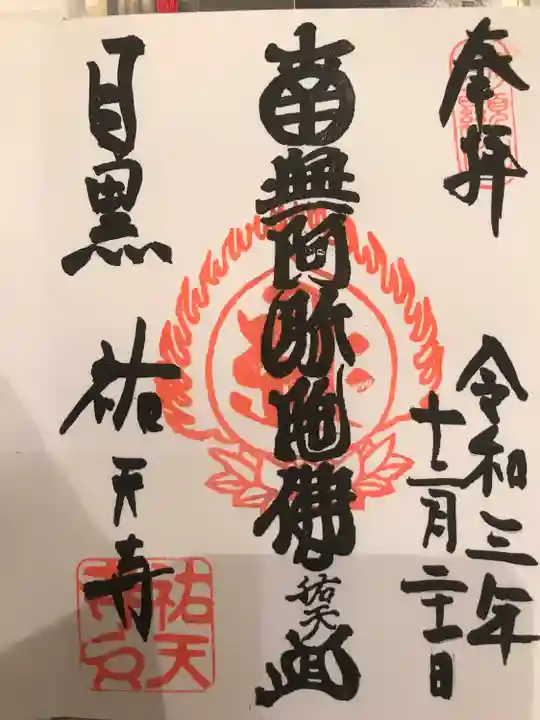 奉拝
令和三年
十二月二十一日
南無阿弥陀佛
祐天
目黒 祐天寺